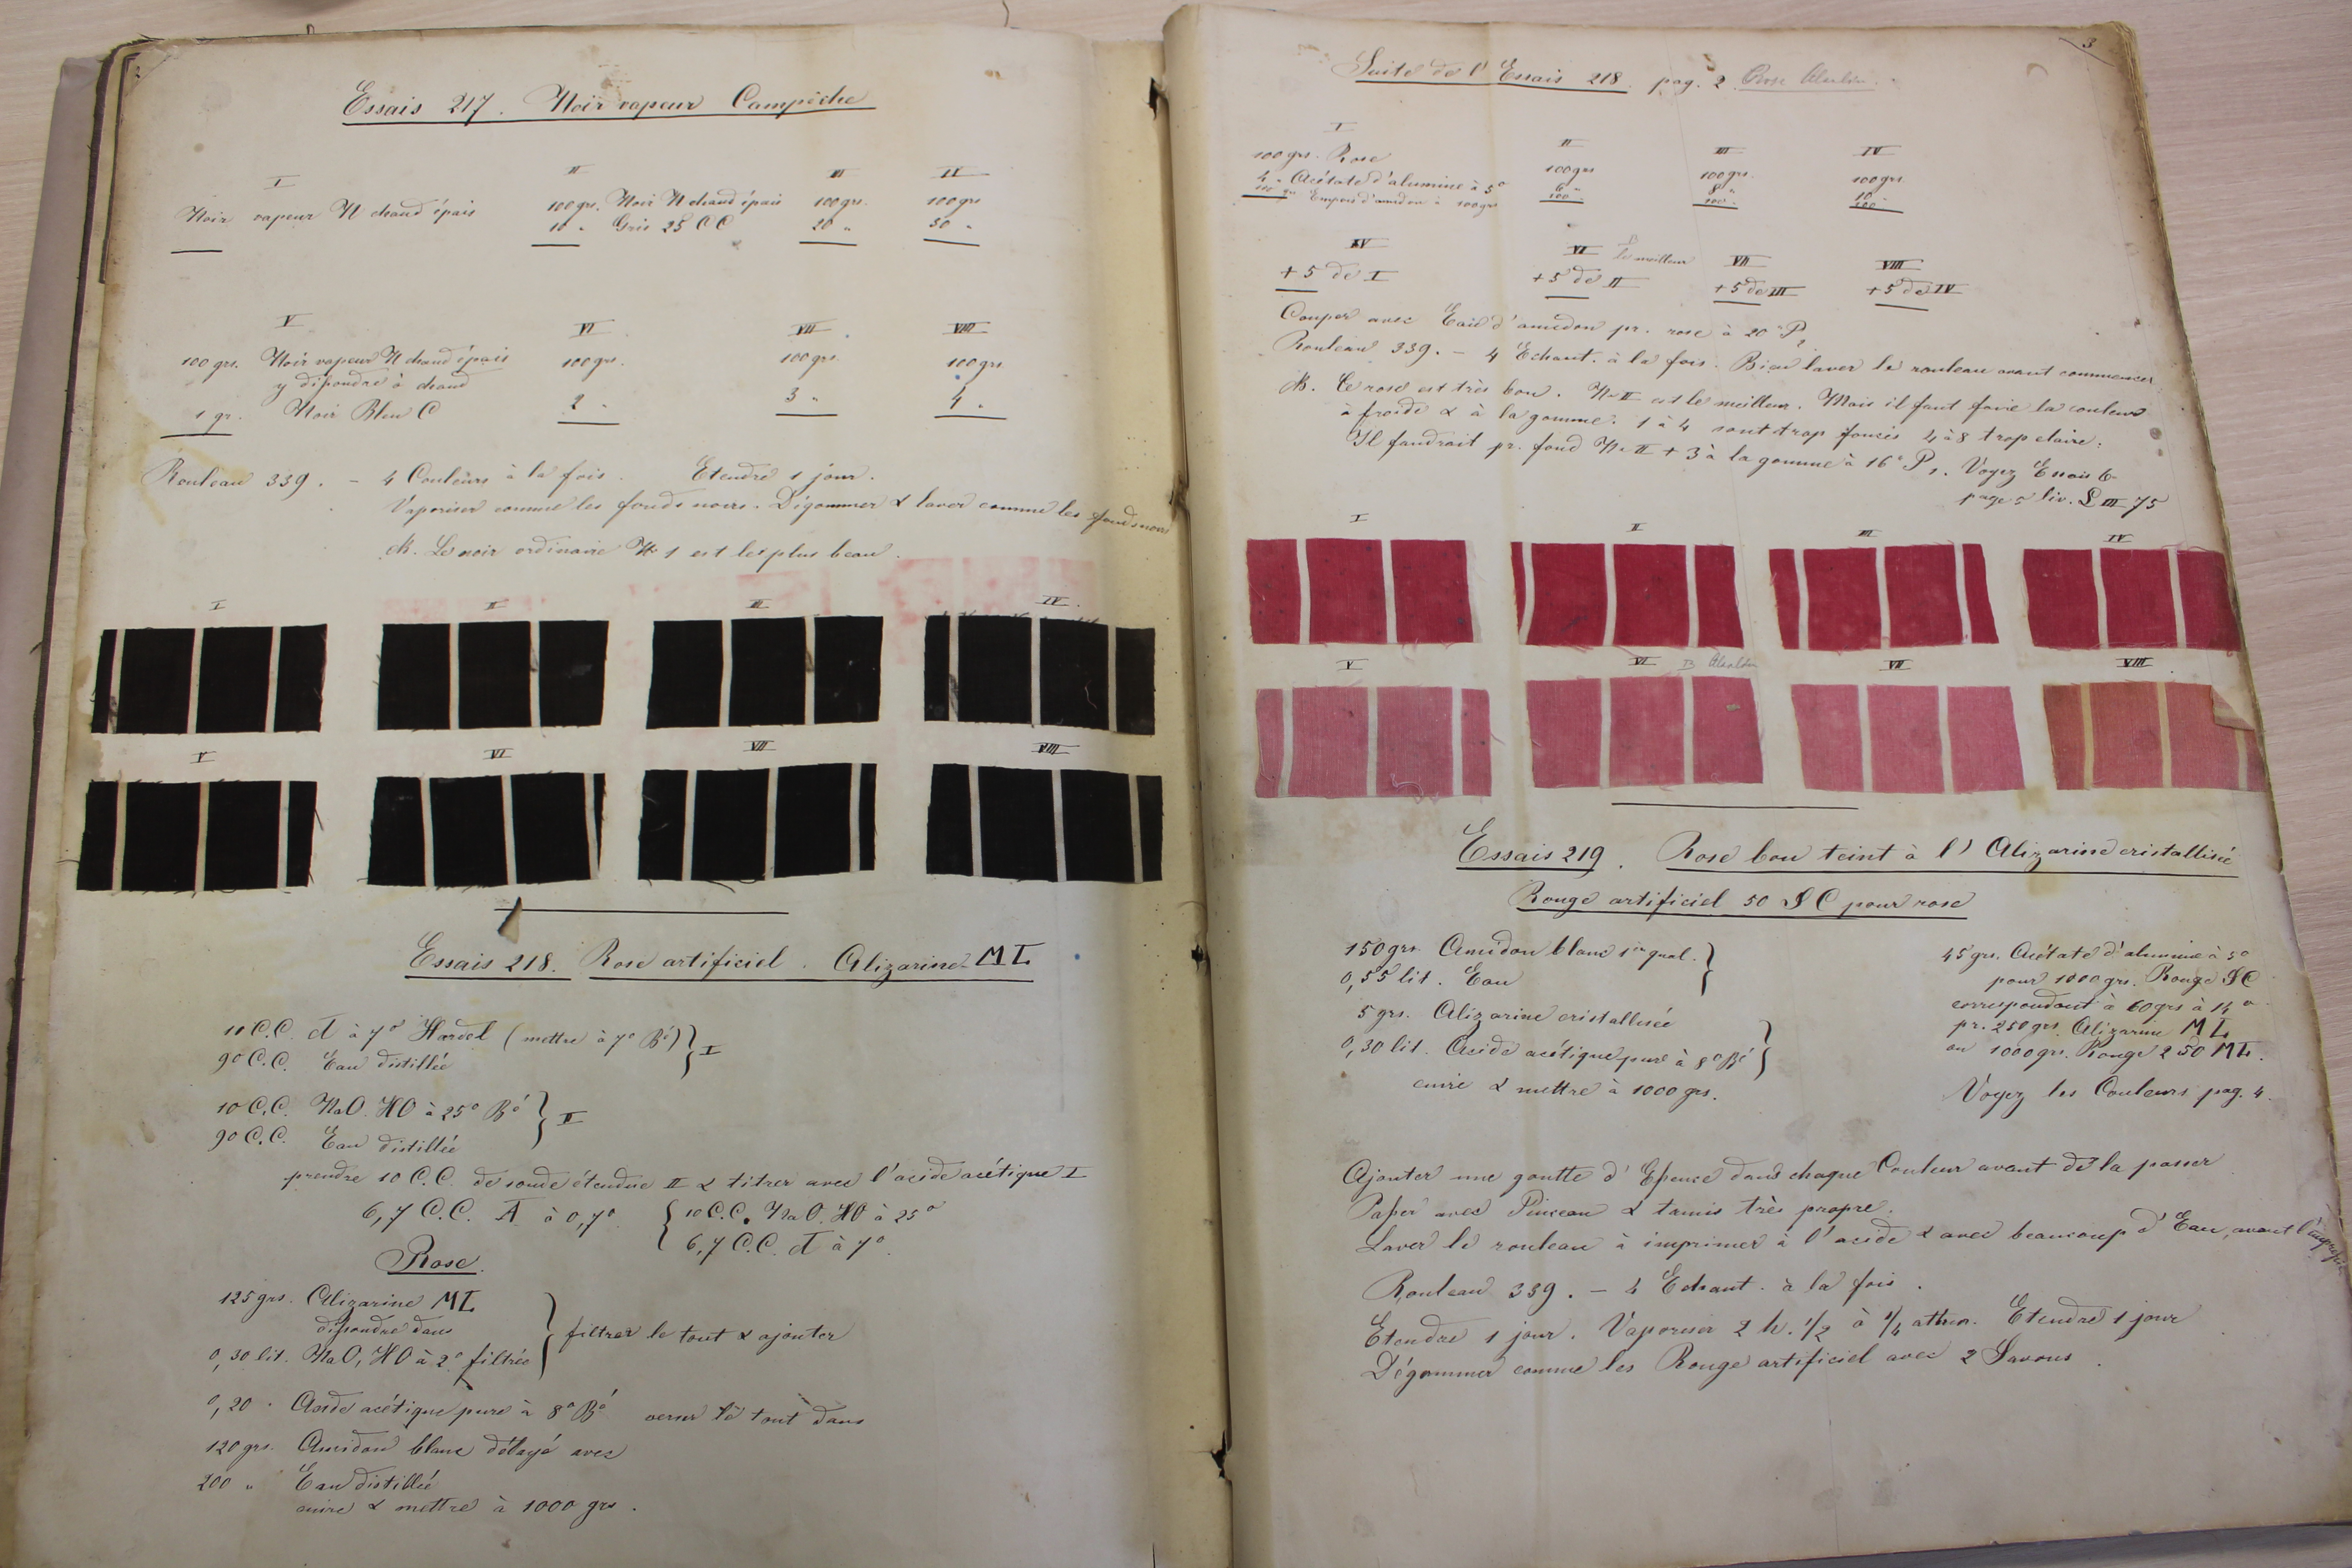 2
Essais 217. Noir vapeur Campêche
I II III IV
Noir vapeur N chaud épais 100 grs. Noir N chaud épais 100 grs. 100 grs
10 " Gris 25 CC 20 " 30 "
V VI VII VIII
100 grs. Noir vapeur N chaud épais 100 grs. 100 grs. 100 grs.
y dissoudre à chaud
1 gr. Noir Bleu C 2 " 3 " 4 "
Rouleau 339. - 4 Couleurs à la fois. Etendre 1 jour.
Vaporiser comme les fonds noirs. Dégommer & laver comme les fonds noirs
Le noir ordinaire No 1 est le plus beau.
I II III IV.
V VI VII VIII
Essais 218. Rose artificiel. Alizarine ML
10 C.C. à 7° Hardel (mettre à 7° Bé) } I
90 C.C. Eau distillée
10 C.C. NaO. HO à 25° Bé } II
90 C.C. Eau distillée
prendre 10 C.C. de soude étendue II & titrer avec l'acide acétique I
6,7 C.C. A à 0,7° { 10 C.C. NaO. HO à 25°
6,7 C.C. à 7°.
Rose.
125 grs. Alizarine ML
dissoudre dans } filtrer le tout & ajouter
0,30 lit. NaO, HO à 2° filtrée
0,20 " Acide acétique pure à 8° Bé verser le tout dans
120 grs. Amidon blanc délayé avec
200 " Eau distillée
cuire & mettre à 1000 grs.
3
Suite de l'Essais 218. pag. 2
I II III IV
100 grs. Rose 100 grs 100 grs. 100 grs.
4 " Acétate d'alumine à 5° 6 " 8 " 10
100 gr. Empois d'amidon à 100 grs 100 " 100 " 100 "
VI le meilleur VII VIII
+ 5 de I + 5 de II + 5 de III + 5 de IV
Couper avec Eau d'amidon pr. rose à 20° P.
Rouleau 339. - 4 Echant. à la fois. Bien laver le rouleau avant commencer
Le rose est très bon. No II est le meilleur. Mais il faut faire la couleur
à froide & à la gomme. 1 à 4 sont trop foncés 4 à 8 trop claire.
Il faudrait pr. fond No II + 3 à la gomme à 16° P. Voyez Essais 6
page 5 liv. L III 75
I II III IV
V VI VII VIII
Essais 219. Rose bon teint à l'Alizarine cristallisée
Rouge artificiel 50 SC pour rose
150 grs. Amidon blanc 1re qual. } 45 grs. Acétate d'alumine à 5°
0,55 lit. Eau pour 1000 grs. Rouge SC
5 grs. Alizarine cristallisée correspondant à 60 grs à 14°
0,30 lit. Acide acétique pure à 8° Bé } pr. 250 grs. Alizarine ML
cuire & mettre à 1000 grs. ou 1000 grs. Rouge 250 ML.
Voyez les Couleurs pag. 4.
Ajouter une goutte d'Essence dans chaque Couleur avant de la passer
Passer avec Pinceau & tamis très propre.
Laver le rouleau à imprimer à l'acide & avec beaucoup d'Eau, avant
Rouleau 339. - 4 Echant. à la fois.
Etendre 1 jour. Vaporiser 2 h. 1/2 à 1/4 athm. Etendre 1 jour
Dégommer comme les Rouge artificiel avec 2 Savons.